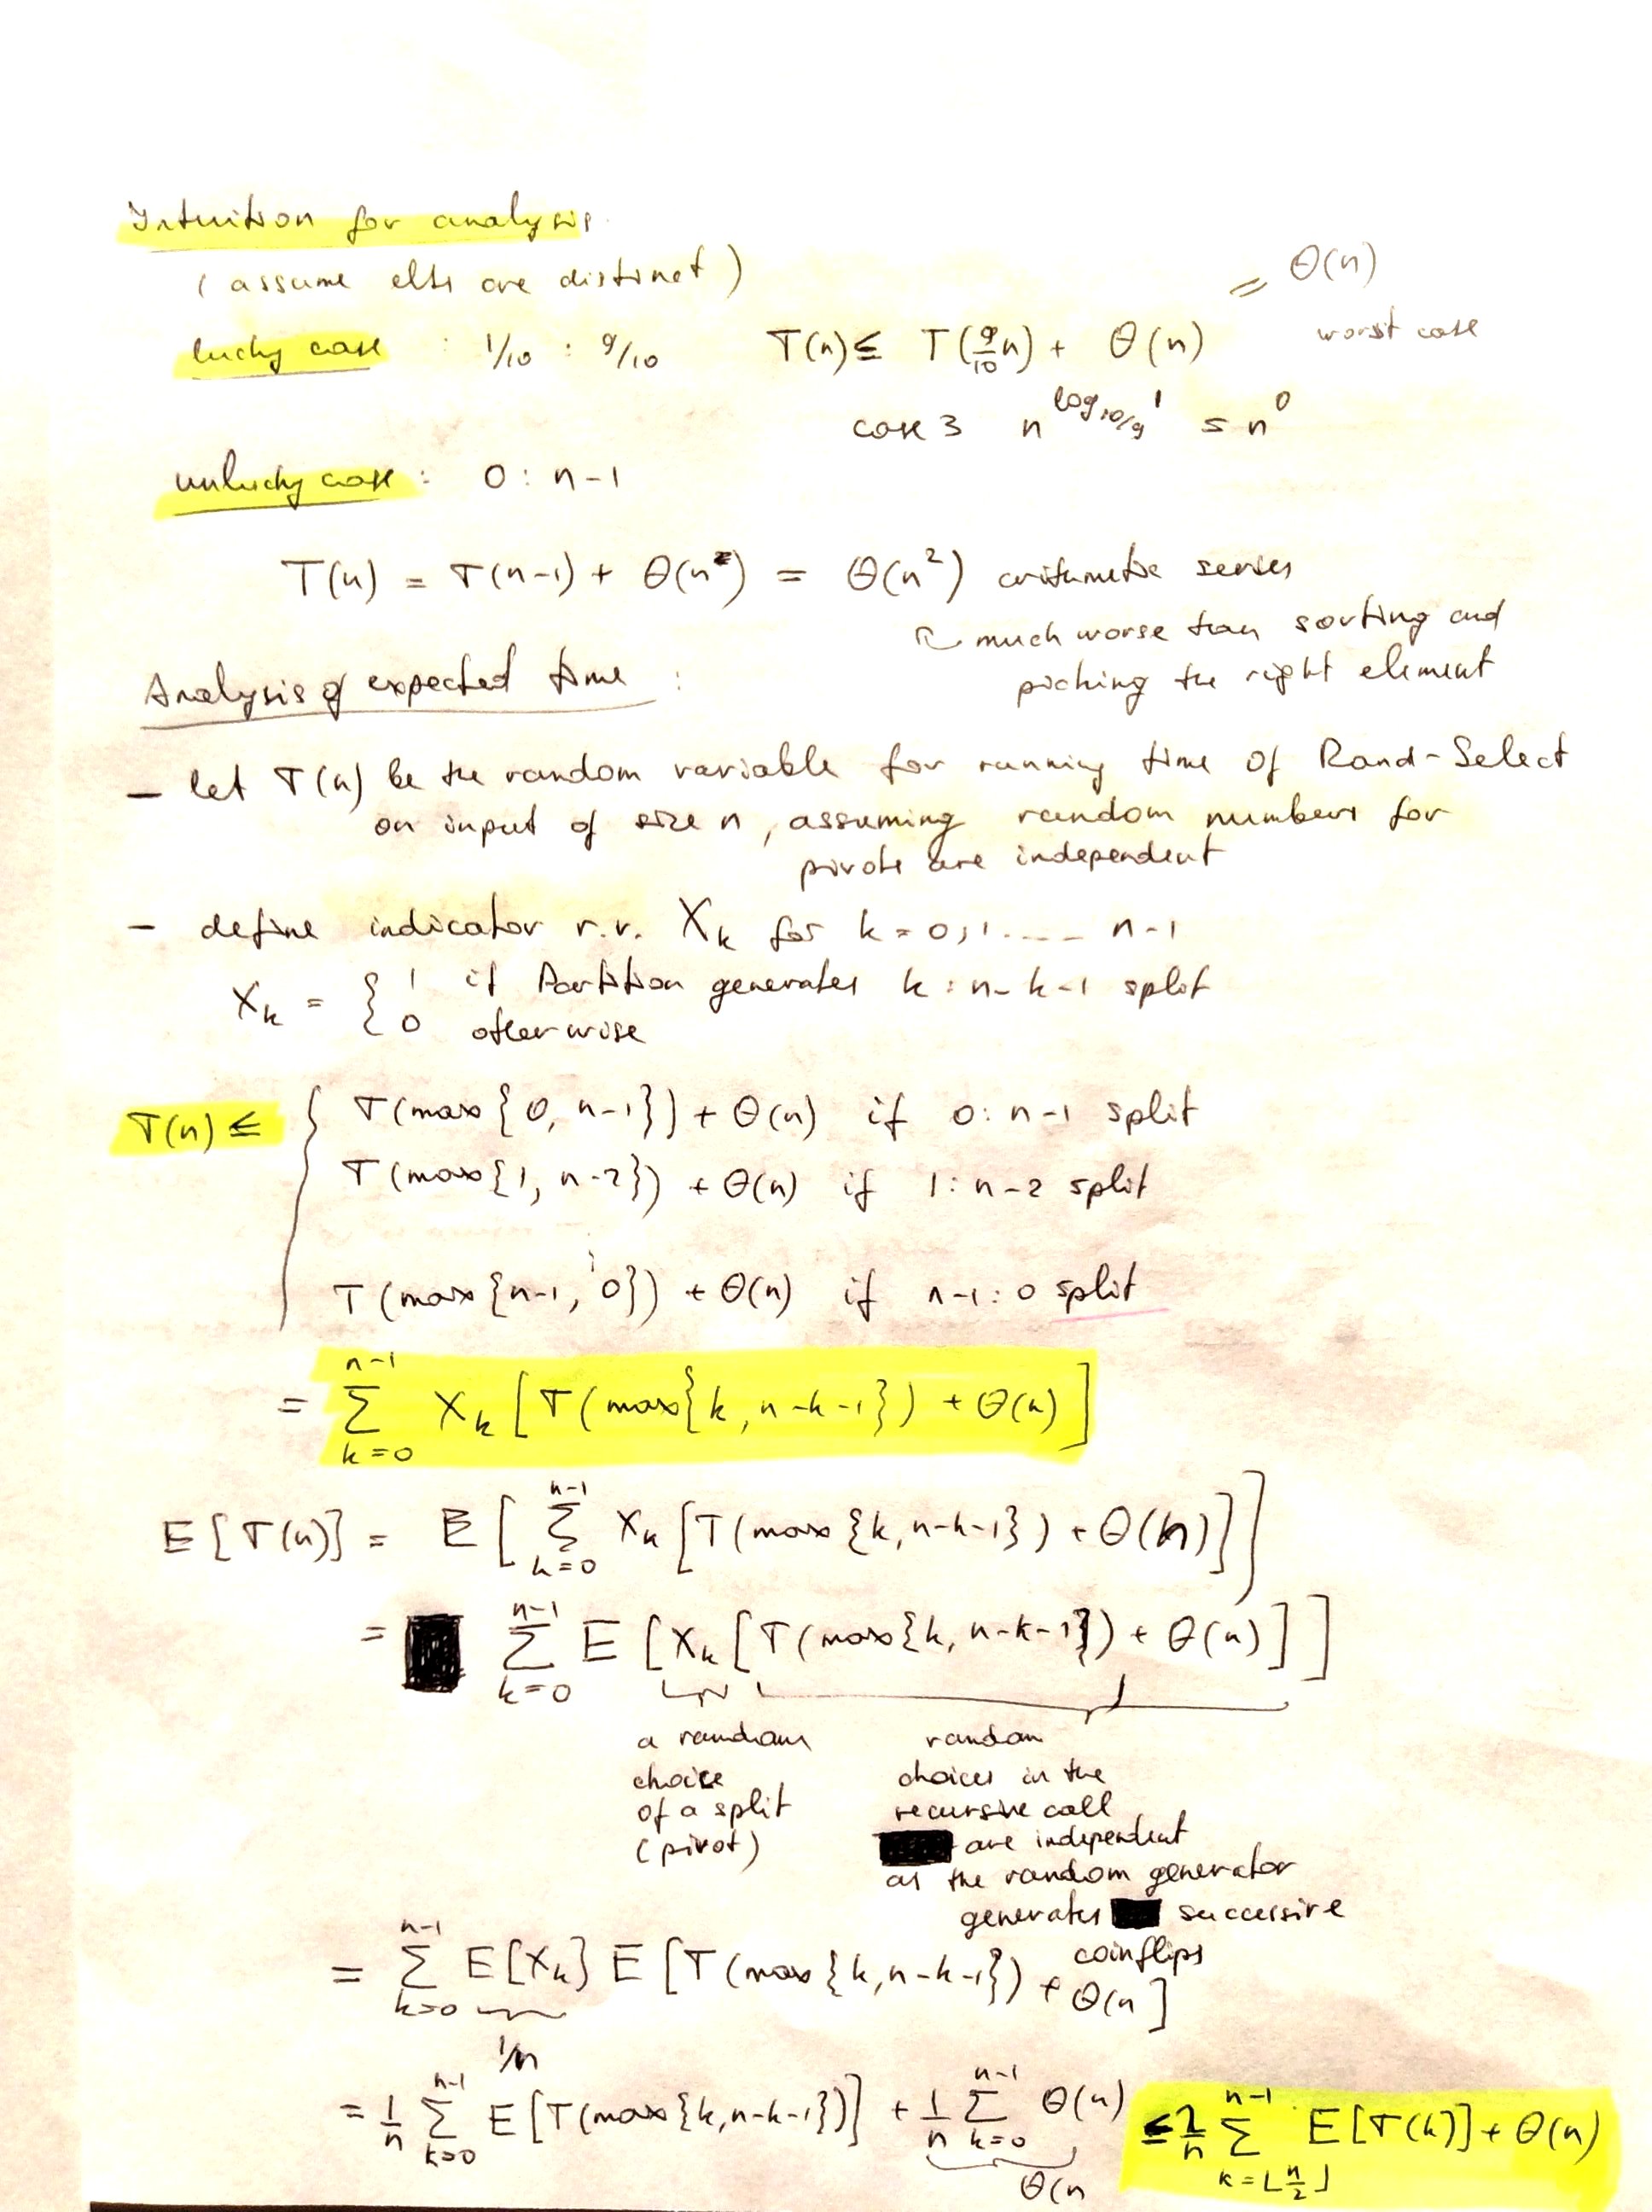 Intuition for analysis.
(assume elts are distinct)
= Θ(n)
worst case
lucky case : 1/10 : 9/10 T(n) ≤ T(9/10 n) + Θ(n)
case 3 n^{log_{10/9} 1} = n^0
unlucky case : 0 : n-1
T(n) = T(n-1) + Θ(n) = Θ(n²) arithmetic series
↖ much worse than sorting and
picking the right element
Analysis of expected time :
- let T(n) be the random variable for running time of Rand-Select
on input of size n, assuming random numbers for
pivots are independent
- define indicator r.v. X_k for k = 0, 1 .... n-1
X_k = { 1 if Partition generates k : n-k-1 split
0 otherwise
T(n) ≤ { T(max{0, n-1}) + Θ(n) if 0 : n-1 split
T(max{1, n-2}) + Θ(n) if 1 : n-2 split
⋮
T(max{n-1, 0}) + Θ(n) if n-1 : 0 split
= ∑_{k=0}^{n-1} X_k [T(max{k, n-k-1}) + Θ(n)]
E[T(n)] = E[∑_{k=0}^{n-1} X_k [T(max{k, n-k-1}) + Θ(n)]]
= ∑_{k=0}^{n-1} E[X_k [T(max{k, n-k-1}) + Θ(n)]]
a random
choice
of a split
(pivot)
random
choices in the
recursive call
are independent
as the random generator
generates successive
coinflips
= ∑_{k=0}^{n-1} E[X_k] E[T(max{k, n-k-1}) + Θ(n]
1/n
= 1/n ∑_{k=0}^{n-1} E[T(max{k, n-k-1})] + 1/n ∑_{k=0}^{n-1} Θ(n) ≤ 2/n ∑_{k=⌊n/2⌋}^{n-1} E[T(k)] + Θ(n)
Θ(n